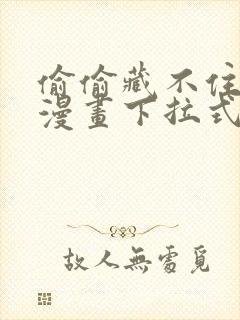 偷偷藏不住
漫畫下拉式
故人無處覓